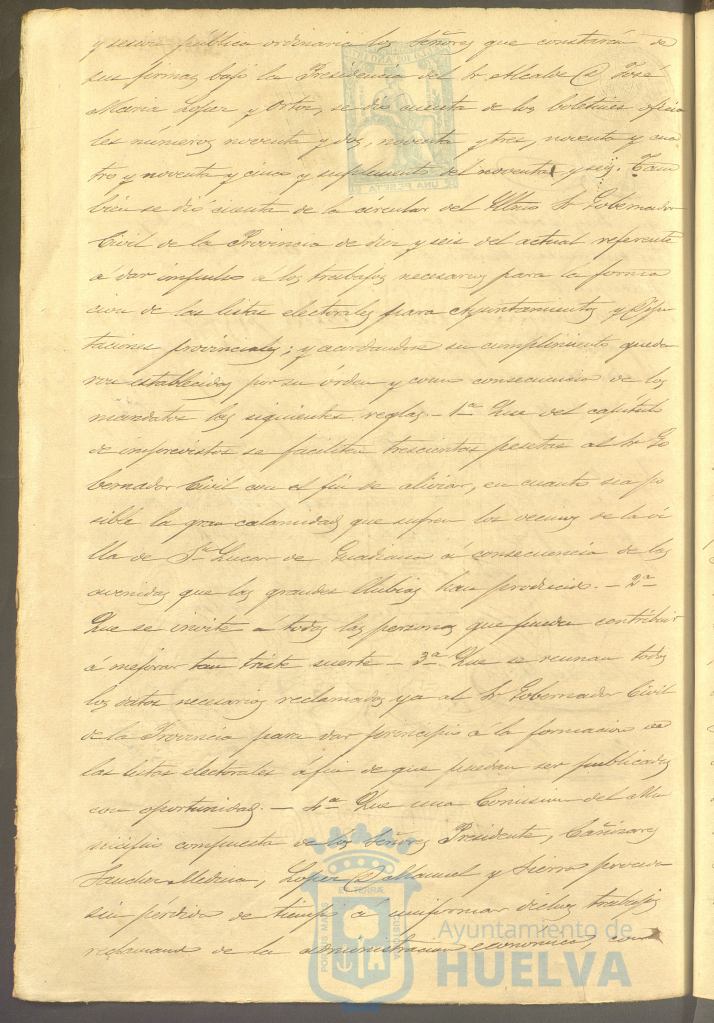 y sesion publica ordinaria los Señores que constarán de
sus firmas, bajo la Presidencia del Sr Alcalde D. José
Maria Lopez y Ortiz, se dió cuenta de los boletines oficia
les números noventa y dos, noventa y tres, noventa y cua
tro y noventa y cinco y suplemento del noventa y seis. Tam
bien se dió cuenta de la circular del Iltmo Sr Gobernador
Civil de la Provincia de diez y seis del actual referente
á dar impulso á los trabajos necesarios para la forma
cion de las listas electorales para Ayuntamientos y Dipu
taciones provinciales; y acordandose su cumplimiento queda
ron establecidas por su órden y como consecuencia de los
mandatos las siguientes reglas. — 1ª Que del capitulo
de imprevistos se faciliten trescientas pesetas al Sr Go
bernador Civil con el fin de aliviar, en cuanto sea po
sible la gran calamidad que sufren los vecinos de la vi
lla de Sn Lucar de Guadiana á consecuencia de las
avenidas que las grandes lluvias han producido. — 2ª
Que se invite á todas las personas que puedan contribuir
á mejorar tan triste suerte — 3ª Que se reunan todos
los datos necesarios reclamados ya al Sr Gobernador Civil
de la Provincia para dar principio á la formacion de
las listas electorales á fin de que puedan ser publicadas
con oportunidad. — 4ª Que una Comision del Mu
nicipio compuesta de los Señores Presidente, Cañizares
Sanchez Medina, Lopez D. Manuel y Sierra proceda
sin pérdida de tiempo á uniformar dichos trabajos
reclamando de la administracion economica, como
UNA PESETA
PORTUS MARIS
ET TERRÆ
CUSTODIA
Ayuntamiento de
HUELVA